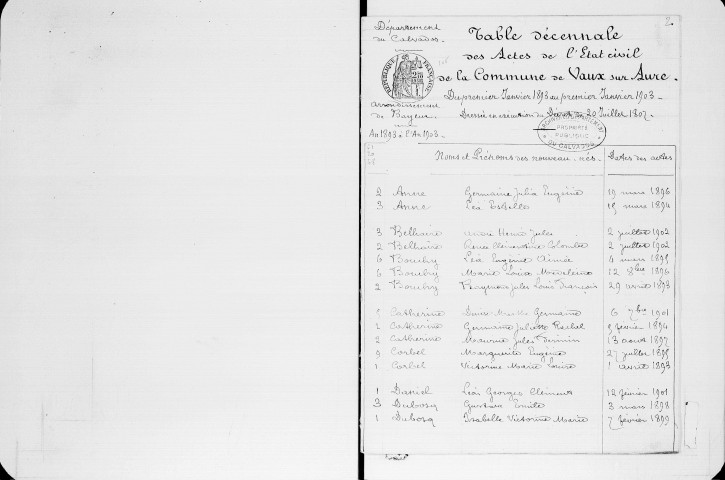 2.
Département
du Calvados.
Table décennale
des Actes de l'Etat civil
de la Commune de Vaux sur Aure.
RÉPUBLIQUE FRANÇAISE
Du premier Janvier 1893 au premier Janvier 1903.
arrondissement
de Bayeux
Dressée en exécution du Décret du 20 Juillet 1807.
PROPRIÉTÉ
PUBLIQUE
DU CALVADOS
An 1893 à l'An 1903.
Noms et Prénoms des nouveau-nés. Dates des actes
2 Anne Germaine Julia Eugénie 19 mars 1896
3 Anne Léa Estelle 19 mars 1894
3 Belhaire André Henri Jules 2 juillet 1902
2 Belhaire Renée Clémentine Colombe 2 juillet 1902
6 Bouchy Léa Eugénie Aimée 4 mars 1895
6 Bouchy Marie Louise Madeleine 12 8bre 1896
2 Bouchy Jules Louis François 29 avril 1893
Catherine Germaine 6 7bre 1901
1 Catherine Germaine Juliette Rachel 9 février 1894
2 Catherine Maurice Jules Firmin 13 août 1897
9 Corbel Marguerite Eugénie 27 juillet 1895
1 Corbel Victorine Marie Louise 1 avril 1893
1 Daniel Léon Georges Clément 12 février 1901
3 Dubosq Gustave Emile 3 mars 1898
1 Dubosq Isabelle Victorine Marie 7 février 1899